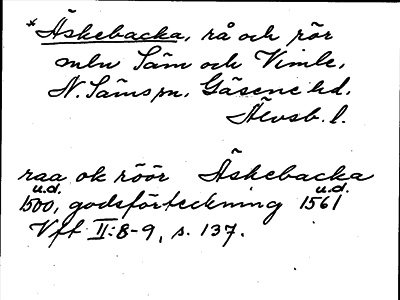 *Äskebacka, rå och rör
mln Säm och Vimle,
N. Säms sn, Gäsene hd,
Älvsb. l.
raa ok röör Äskebacka
u.d. u.d.
1500, godsförteckning 1561
Vft II:8-9, s. 137.